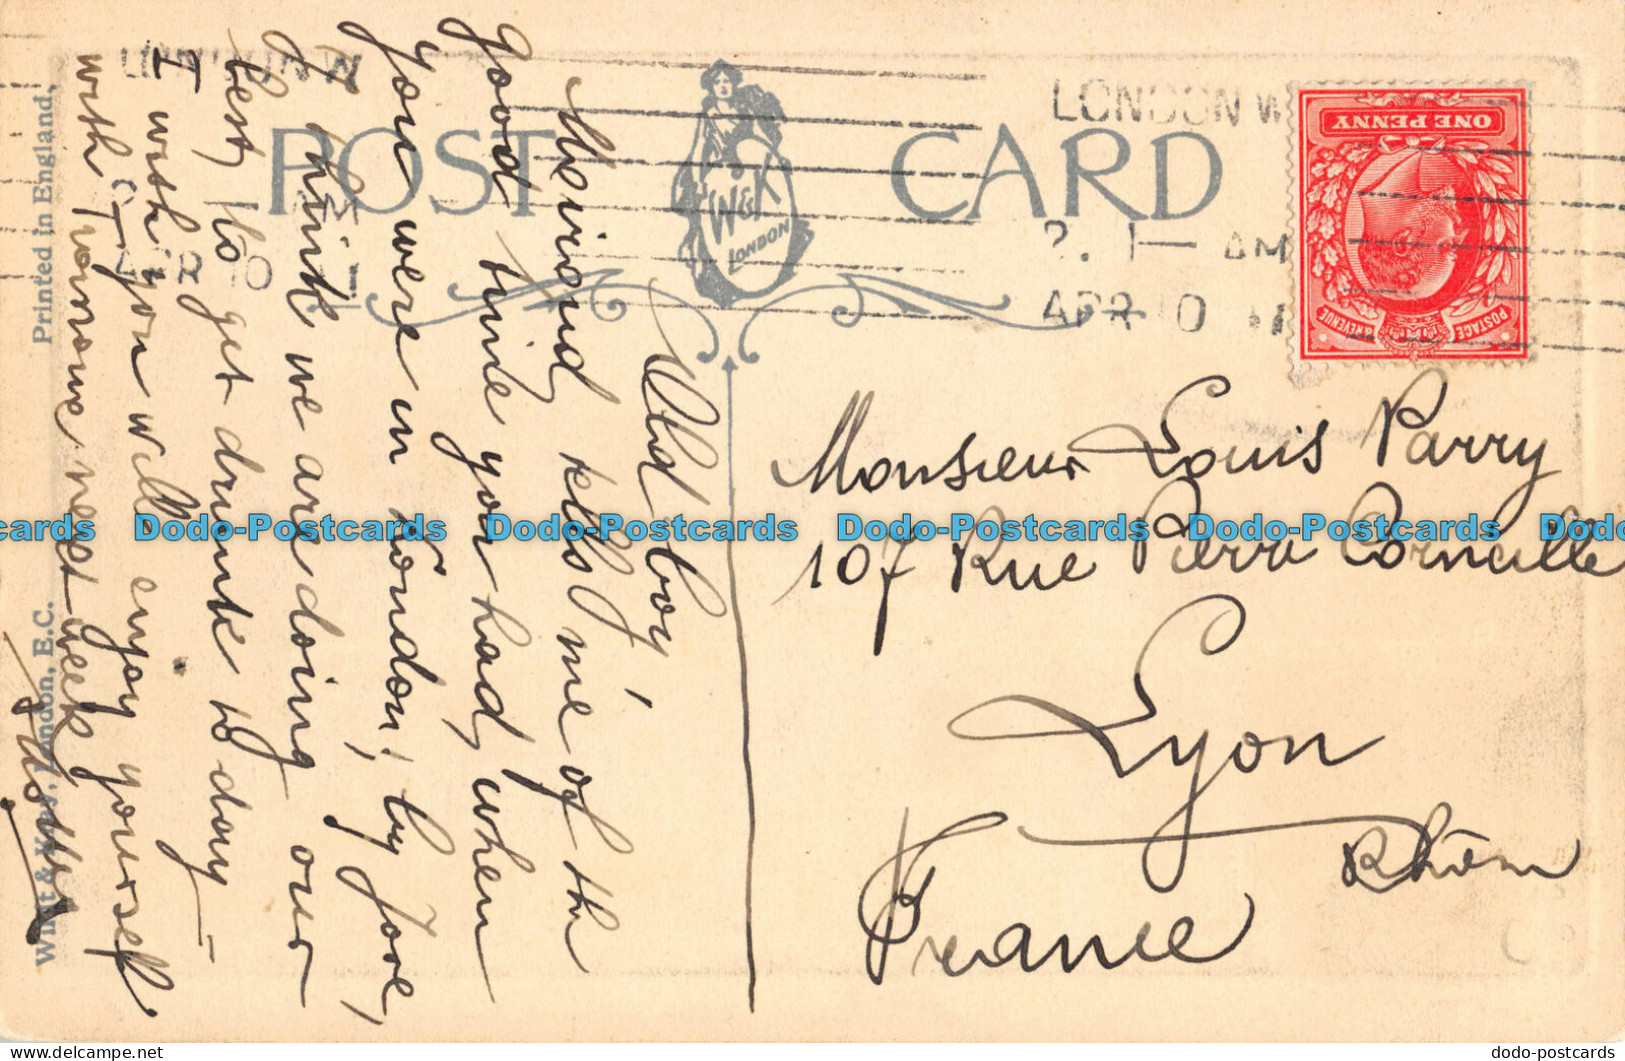 POST CARD
W&K
LONDON
LONDON W
LONDON W
2. 1— AM
APR 10 11
AM
APR 10
ONE PENNY
POSTAGE & REVENUE
Printed in England.
Wildt & Kray, London, E.C.
Old boy,
Meiraud tells me of the
good time you had when
you were in London; by Jove,
I think we are doing our
best to get drunk to day –
I wish you will enjoy yourself
with next week
Monsieur Louis Parry
107 Rue Pierre Corneille
Lyon
Rhône
France
Dodo-Postcards Dodo-Postcards Dodo-Postcards Dodo-Postcards
dodo-postcards